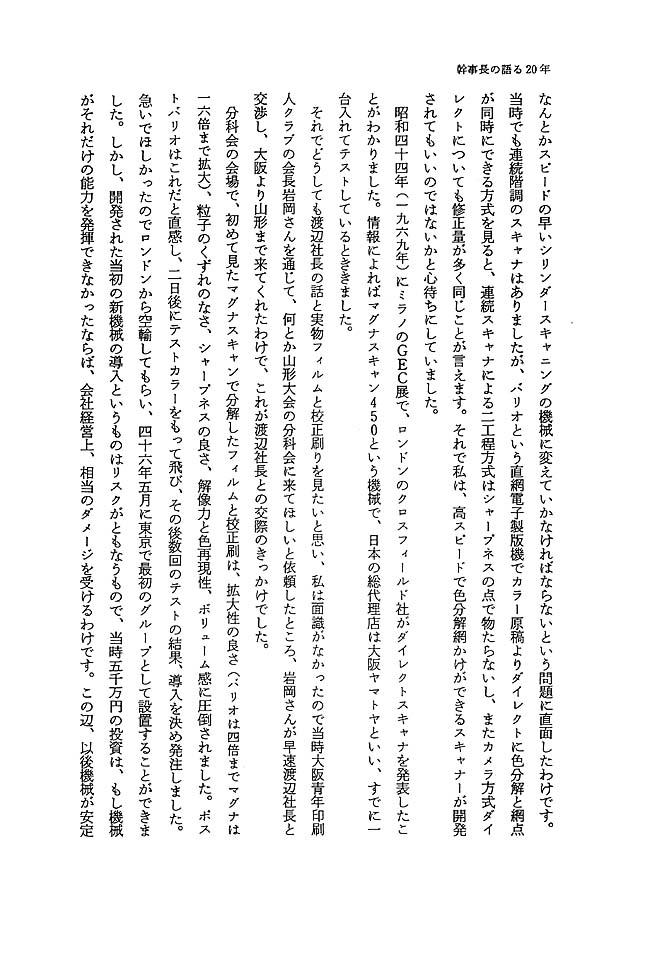 幹事長の語る20年
なんとかスピードの早いシリンダースキャニングの機械に変えていかなければならないという問題に直面したわけです。
当時でも連続階調のスキャナはありましたが、バリオという直網電子製版機でカラー原稿よりダイレクトに色分解と網点
が同時にできる方式を見ると、連続スキャナによる二工程方式はシャープネスの点で物たらないし、またカメラ方式ダイ
レクトについても修正量が多く同じことが言えます。それで私は、高スピードで色分解網かけができるスキャナーが開発
されてもいいのではないかと心待ちにしていました。
昭和四十四年（一九六九年）にミラノのGEC展で、ロンドンのクロスフィールド社がダイレクトスキャナを発表したこ
とがわかりました。情報によればマグナスキャン450という機械で、日本の総代理店は大阪ヤマトヤといい、すでに一
台入れてテストしているとききました。
それでどうしても渡辺社長の話と実物フィルムと校正刷りを見たいと思い、私は面識がなかったので当時大阪青年印刷
人クラブの会長岩岡さんを通じて、何とか山形大会の分科会に来てほしいと依頼したところ、岩岡さんが早速渡辺社長と
交渉し、大阪より山形まで来てくれたわけで、これが渡辺社長との交際のきっかけでした。
分科会の会場で、初めて見たマグナスキャンで分解したフィルムと校正刷は、拡大性の良さ（バリオは四倍までマグナは
一六倍まで拡大）、粒子のくずれのなさ、シャープネスの良さ、解像力と色再現性、ボリューム感に圧倒されました。ポス
トバリオはこれだと直感し、二日後にテストカラーをもって飛び、その後数回のテストの結果、導入を決め発注しました。
急いでほしかったのでロンドンから空輸してもらい、四十六年五月に東京で最初のグループとして設置することができま
した。しかし、開発された当初の新機械の導入というものはリスクがともなうもので、当時五千万円の投資は、もし機械
がそれだけの能力を発揮できなかったならば、会社経営上、相当のダメージを受けるわけです。この辺、以後機械が安定